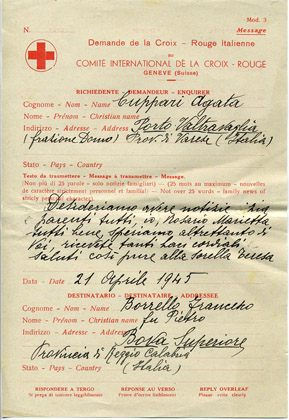 Mod. 3
N.
Message
Demande de la Croix - Rouge Italienne
au
COMITÉ INTERNATIONAL DE LA CROIX - ROUGE
GENEVE (Suisse)
RICHIEDENTE - DEMANDEUR - ENQUIRER
Cognome - Nom - Name Cuppari Agata
Nome - Prénom - Christian name
Indirizzo - Adresse - Address Porto Valtravaglia
(frazione Domo) Prov. di Varese (Italia)
Stato - Pays - Country
Testo da trasmettere - Message à transmettre - Message.
(Non più di 25 parole - solo notizie famigliari) - (25 mots au maximum - nouvelles
de caractère strictement personnel et familial) - Not over 25 words - family news of
strictly personal character).
Desideriamo avere notizie zia
parenti tutti, io, Rosario Marietta
tutti bene, speriamo altrettanto di
voi, ricevete tanti cari cordiali
saluti così pure alla sorella
Data - Date 21 Aprile 1945
DESTINATARIO - DESTINATAIRE - ADDRESSEE
Cognome - Nom - Name Borrello Francesco
Nome - Prénom - Christian name fu Pietro
Indirizzo - Adresse - Address
Bova Superiore
Provincia di Reggio Calabria
Stato - Pays - Country (Italia)
RISPONDERE A TERGO RÉPONSE AU VERSO REPLY OVERLEAF
Si prega di scrivere leggibilmente Prière d'écrire lisiblement Please write clearly